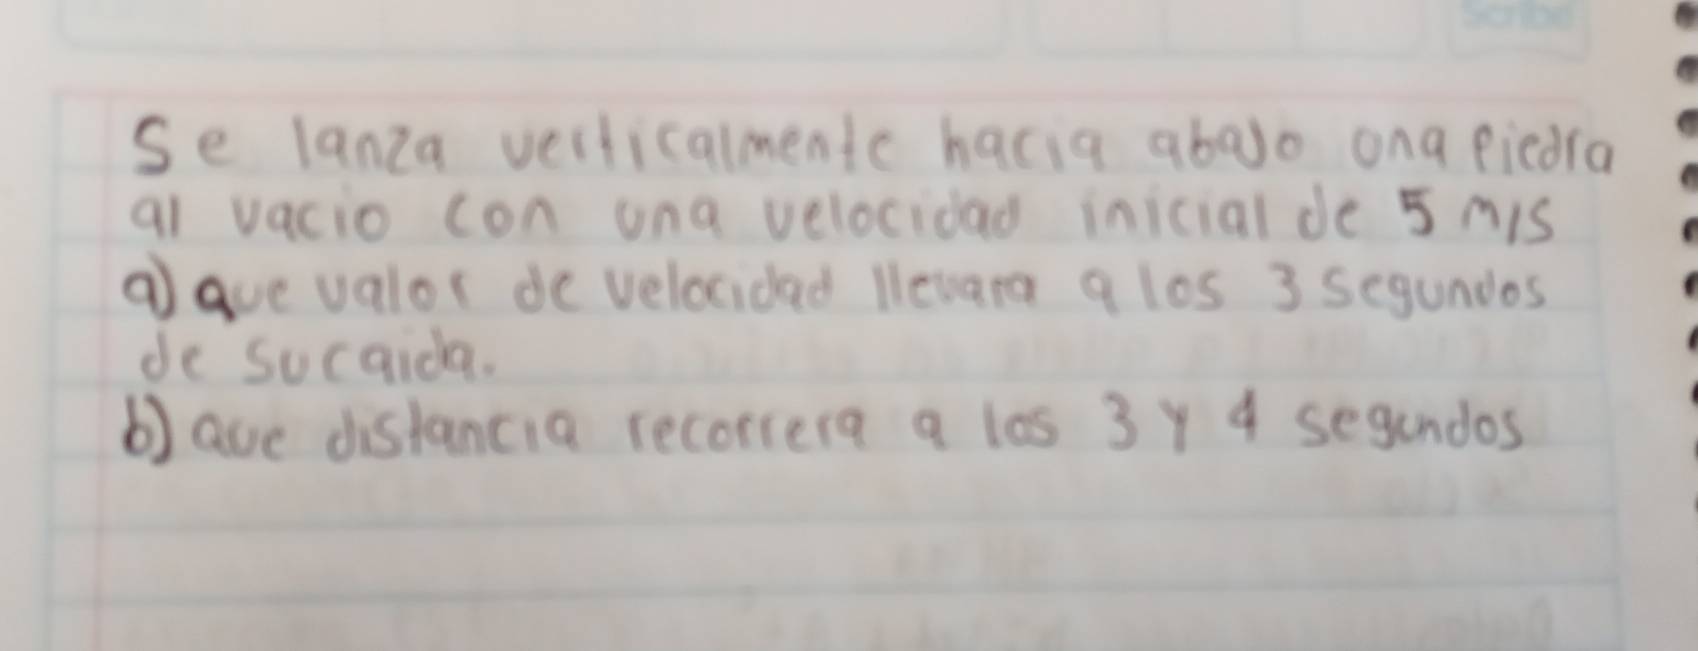 Scribe
Se lanza verticalmente hacia abajo una piedra
al vacio con una velocidad inicial de 5 m/s
a) que valor de velocidad llevara a los 3 segundos
de su caida.
b) que distancia recorrera a los 3 y 4 segundos